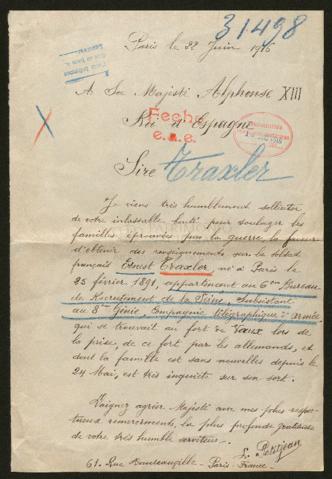 31498
Paris le 22 Juin 1916
A Sa Majesté Alphonse XIII
Roi d'Espagne
Fecha
e.a.e.
Sire Traxler
Je viens très humblement solliciter
de votre inlassable bonté pour soulager les
familles éprouvées par la guerre, la faveur
d'obtenir des renseignements sur le soldat
français Ernest Traxler, né à Paris le
25 février 1891, appartenant au 6em Bureau
de Recrutement de la Seine, Subsistant
au 8em Génie, Compagnie télégraphique d'armée
qui se trouvait au fort de Vaux lors de
la prise, de ce fort par les allemands, et
dont la famille est sans nouvelles depuis le
24 Mai, est très inquiète sur son sort.
Daignez agréer Majesté avec mes plus respec-
tueux remerciements, la plus profonde gratitude
de votre très humble serviteur.
L. Petitjean
61. Rue Paris-France-